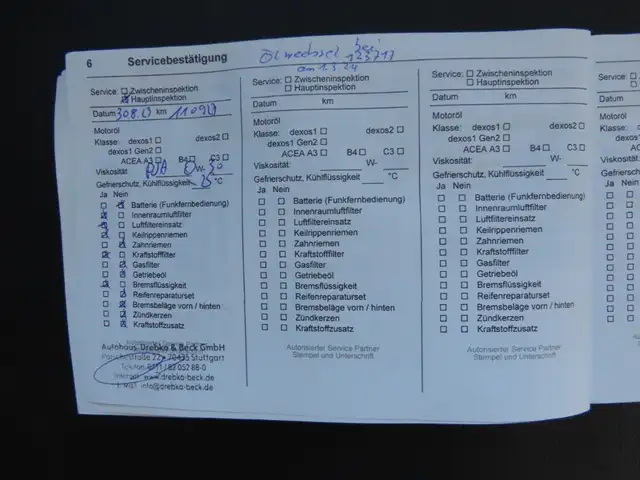 6 Servicebestätigung
Ölwechsel bei
123717
am 1.3.24
Service: Zwischeninspektion
Hauptinspektion
Datum km
Motoröl
Klasse: dexos1 dexos2
dexos1 Gen2
ACEA A3 B4 C3
Viskosität: W- 30
Gefrierschutz, Kühlflüssigkeit - 25 °C
Ja Nein
Batterie (Funkfernbedienung)
Innenraumluftfilter
Luftfiltereinsatz
Keilrippenriemen
Zahnriemen
Kraftstofffilter
Gasfilter
Getriebeöl
Bremsflüssigkeit
Reifenreparaturset
Bremsbeläge vorn / hinten
Zündkerzen
Kraftstoffzusatz
Autohaus Drebko & Beck GmbH
70435 Stuttgart
Telefon 0711 / 82 052 88-0
Internet: www.drebko-beck.de
E-Mail: info@drebko-beck.de
Service: Zwischeninspektion
Hauptinspektion
Datum km
Motoröl
Klasse: dexos1 dexos2
dexos1 Gen2
ACEA A3 B4 C3
Viskosität: W-
Gefrierschutz, Kühlflüssigkeit °C
Ja Nein
Batterie (Funkfernbedienung)
Innenraumluftfilter
Luftfiltereinsatz
Keilrippenriemen
Zahnriemen
Kraftstofffilter
Gasfilter
Getriebeöl
Bremsflüssigkeit
Reifenreparaturset
Bremsbeläge vorn / hinten
Zündkerzen
Kraftstoffzusatz
Autorisierter Service Partner
Stempel und Unterschrift
Service: Zwischeninspektion
Hauptinspektion
Datum km
Motoröl
Klasse: dexos1 dexos2
dexos1 Gen2
ACEA A3 B4 C3
Viskosität: W-
Gefrierschutz, Kühlflüssigkeit °C
Ja Nein
Batterie (Funkfernbedienung)
Innenraumluftfilter
Luftfiltereinsatz
Keilrippenriemen
Zahnriemen
Kraftstofffilter
Gasfilter
Getriebeöl
Bremsflüssigkeit
Reifenreparaturset
Bremsbeläge vorn / hinten
Zündkerzen
Kraftstoffzusatz
Autorisierter Service Partner
Stempel und Unterschrift
Service:
Datum
Motoröl
Klasse:
Viskosität:
Gefrierschutz,
Ja Nein